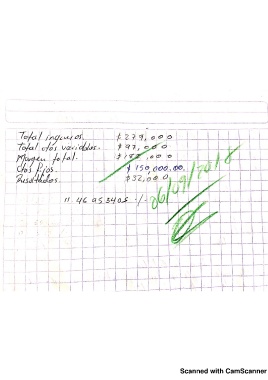 Total ingresos. $279,000
Total ctos variables. $97,000
Margen total. $182,000
ctos fijos. $150,000.00
Resultados. $32,000
11.46953405 %
06/09/2018
Scanned with CamScanner